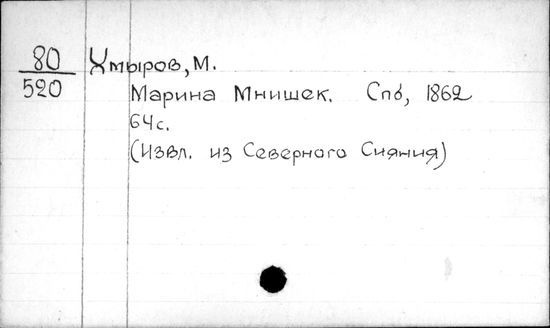 80
520
Хмыров, М.
Марина Мнишек. Спб, 1862
64с.
(Извл. из Северного Сияния)